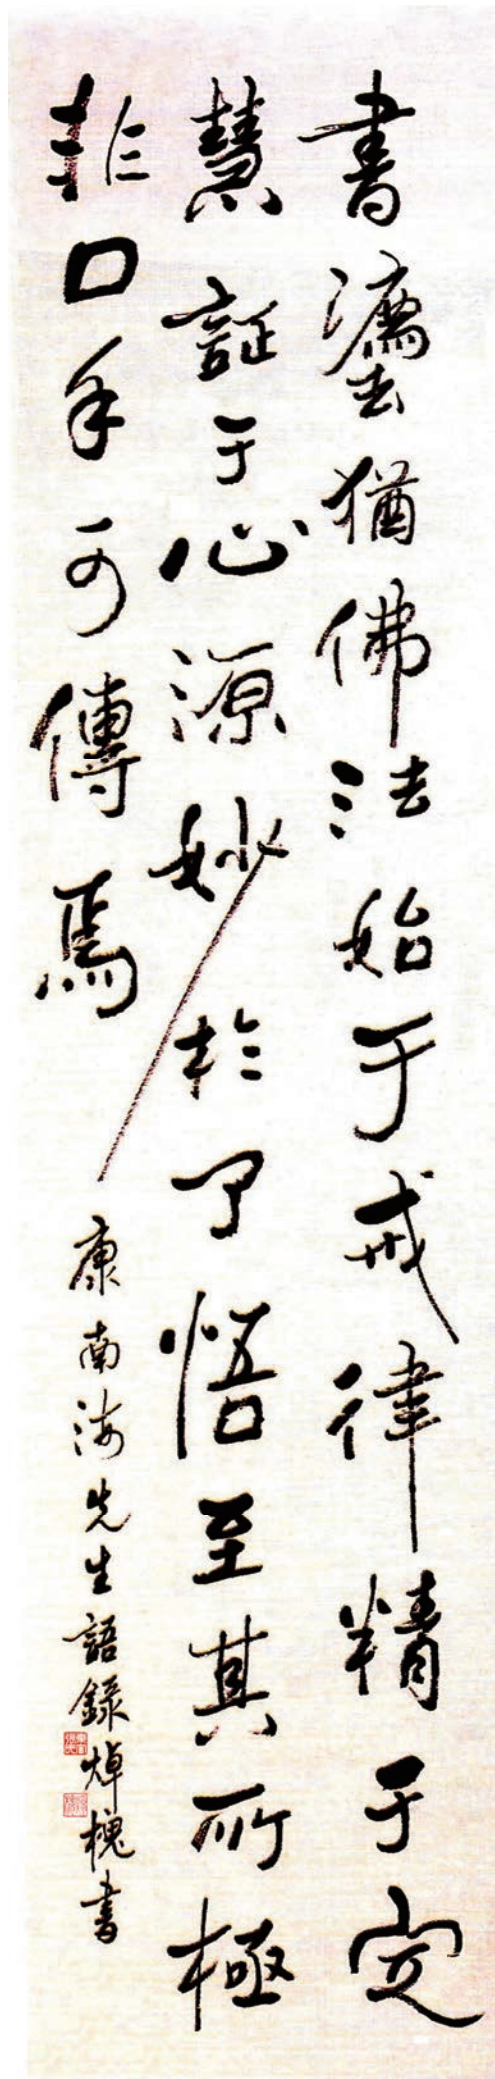 書灋猶佛法始于戒律精于定
慧証于心源妙於了悟至其所極
非口手可傳焉
康南海先生語録焯槐書